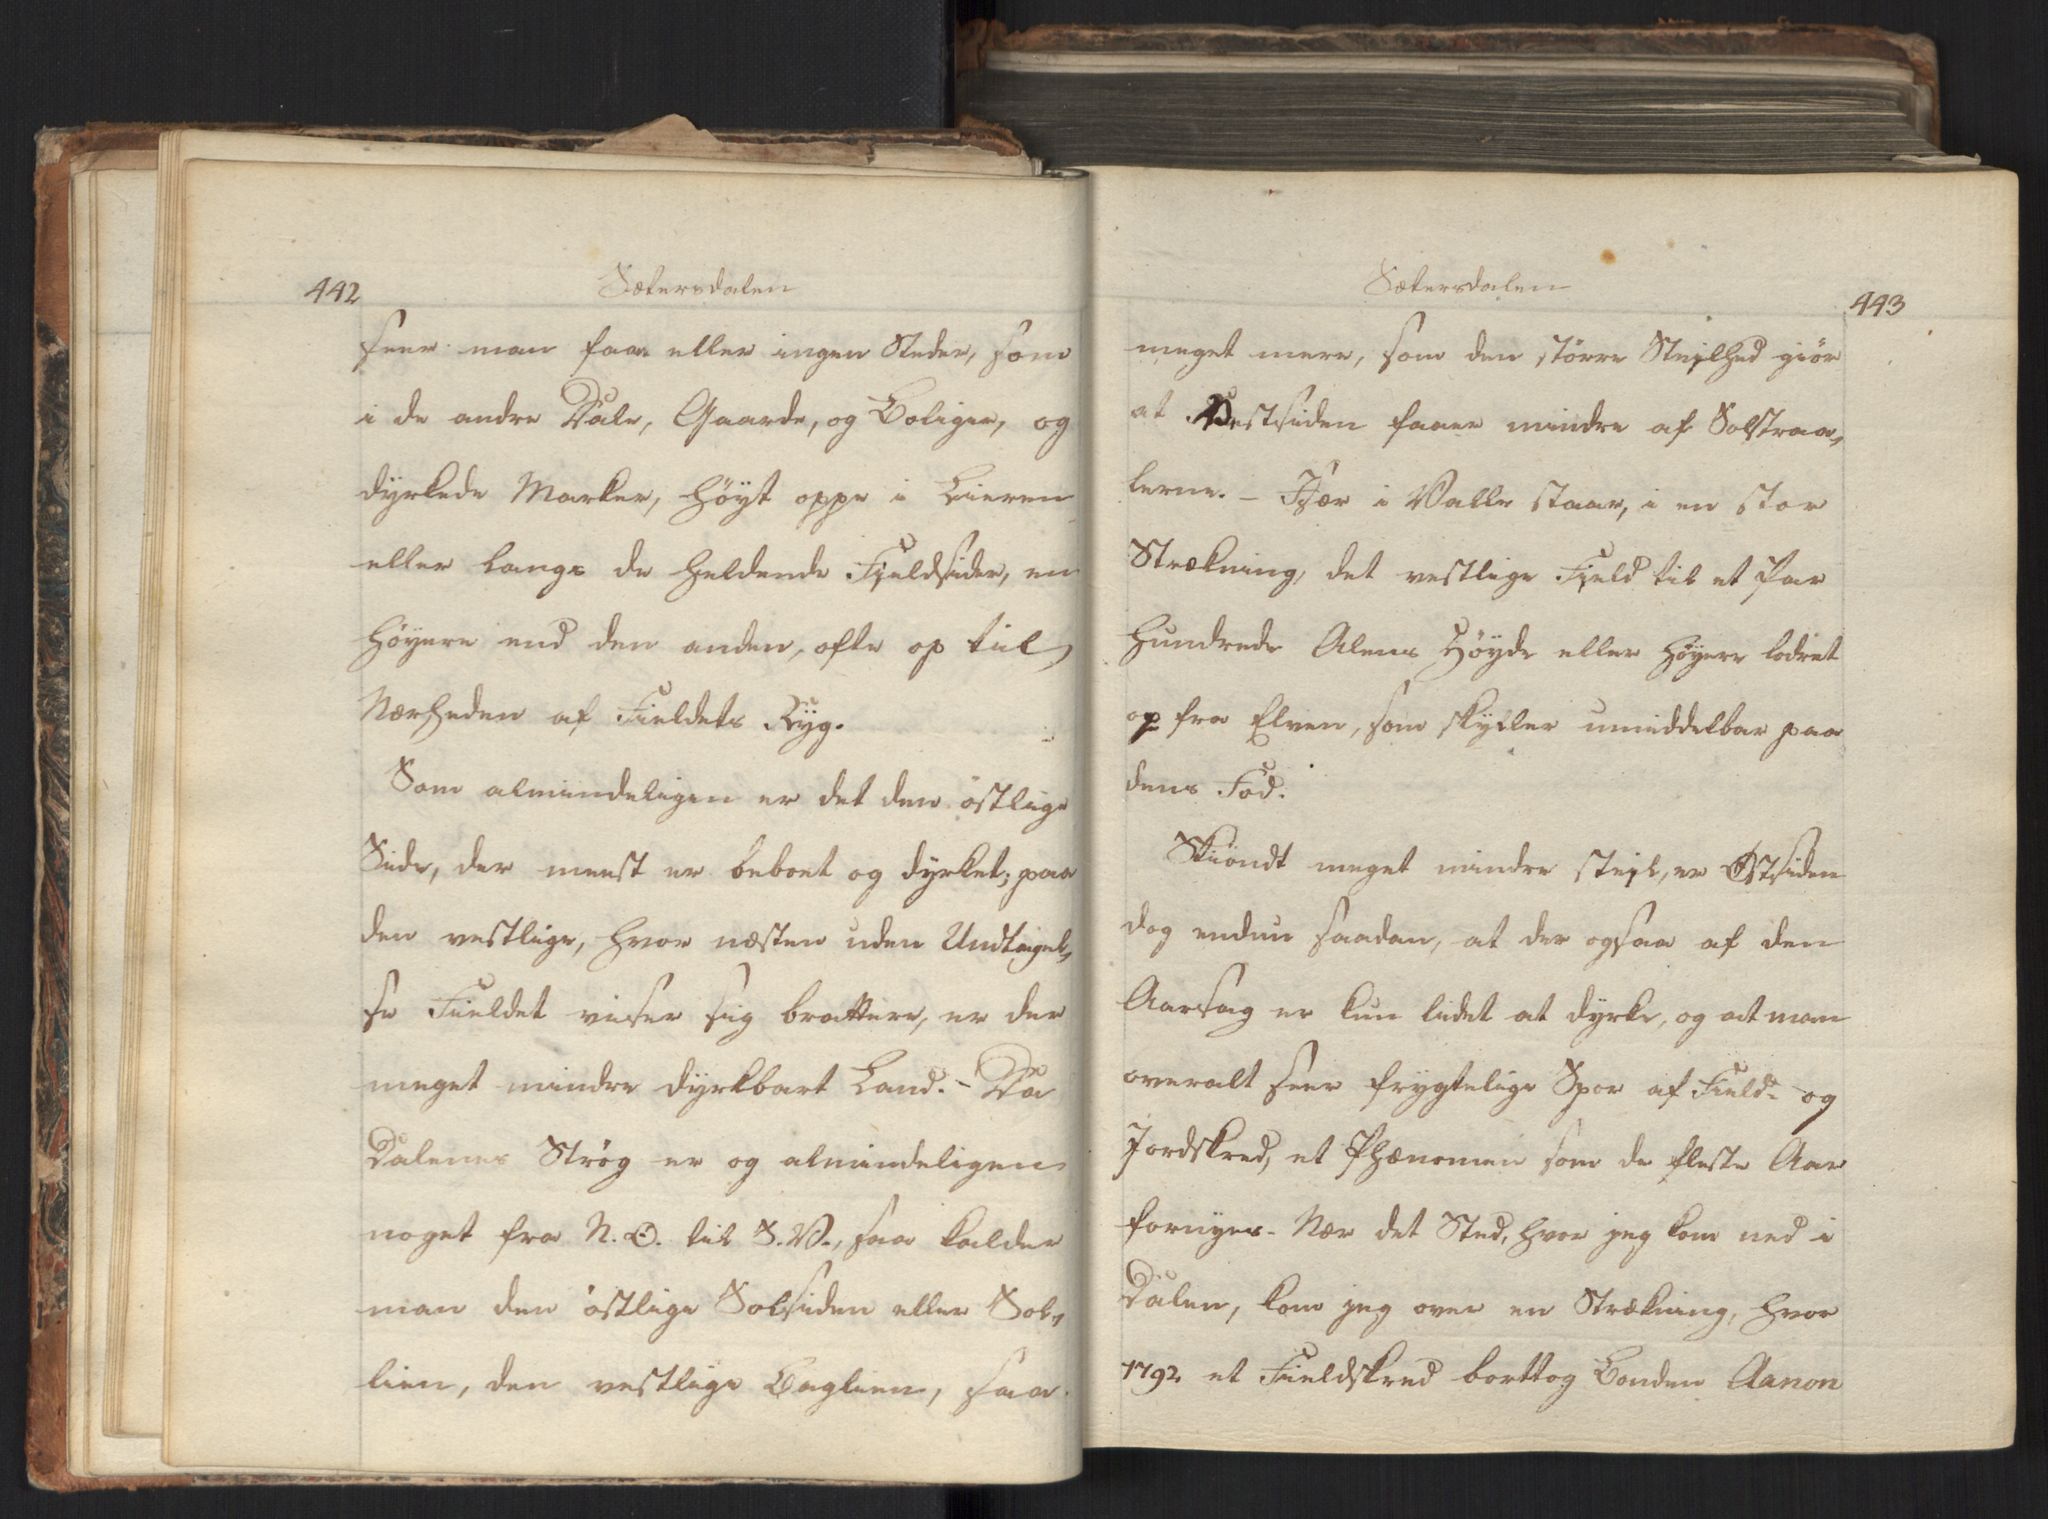 442
Sætersdalen
seer man faae eller ingen Steder, som
i de andre Dale, Gaarde, og Boliger, og
dyrkede Marker, høyt oppe i Lieren
eller langs de heldende Fjeldsider, en
høyere end den anden, ofte op til
Nærheden af Fieldets Ryg.
Som almindeligen er det den östlige
Side, der meest er beboet og dyrket; paa
den vestlige, hvor næsten uden Undtagel„
se Fieldet viser sig brattere, er der
meget mindre dyrkbart Land. - Da
Dalenes Strøg er og almindeligen
noget fra N.O. til S.V., saa kalder
man den östlige Solsiden eller Sol„
lien, den vestlige Baglien, saa
443
Sætersdalen
meget mere, som den större Stejlhed giör
at Vestsiden faaer mindre af Solstraa„
lerne. - Her i Valle staar, i en stor
Strækning, det vestlige Field til et Par
hundrede Alens Høyde eller høyere lodret
op fra Elven, som skyller umiddelbar paa
dens Fod.
Skiöndt meget mindre stejl, er Østsiden
dog endnu saadan, at der ogsaa af den
Aarsag er kun lidet at dyrke, og at man
overalt seer frygtelige Spor af Field- og
Jordskred, et Phænomen som de fleste Aar
fornyes. Nær det Sted, hvor jeg kom ned i
Dalen, kom jeg over en Strækning, hvor
1792 et Fieldskred borttog Bonden Aanon